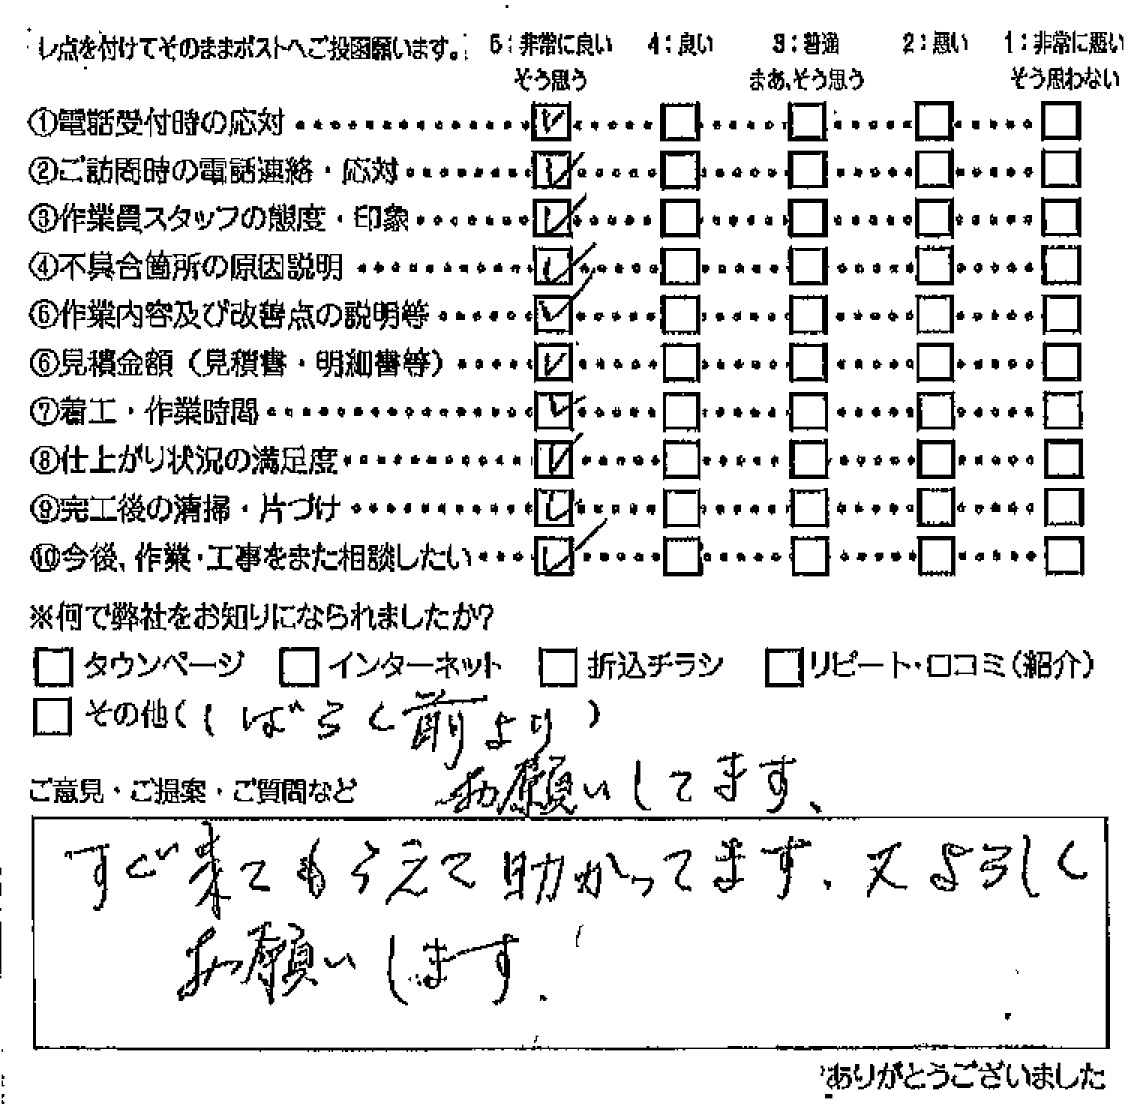 レ点を付けてそのままポストへご投函願います。 5：非常に良い 4：良い 3：普通 2：悪い 1：非常に悪い
そう思う まあ、そう思う そう思わない
①電話受付時の応対
②ご訪問時の電話連絡・応対
③作業員スタッフの態度・印象
④不具合箇所の原因説明
⑤作業内容及び改善点の説明等
⑥見積金額（見積書・明細書等）
⑦着工・作業時間
⑧仕上がり状況の満足度
⑨完工後の清掃・片づけ
⑩今後、作業・工事をまた相談したい
※何で弊社をお知りになられましたか？
タウンページ インターネット 折込チラシ リピート・口コミ（紹介）
その他（しばらく前より）
お願いしてます、
ご意見・ご提案・ご質問など
すぐ来てもらえて助かってます、又よろしく
お願いします.
ありがとうございました